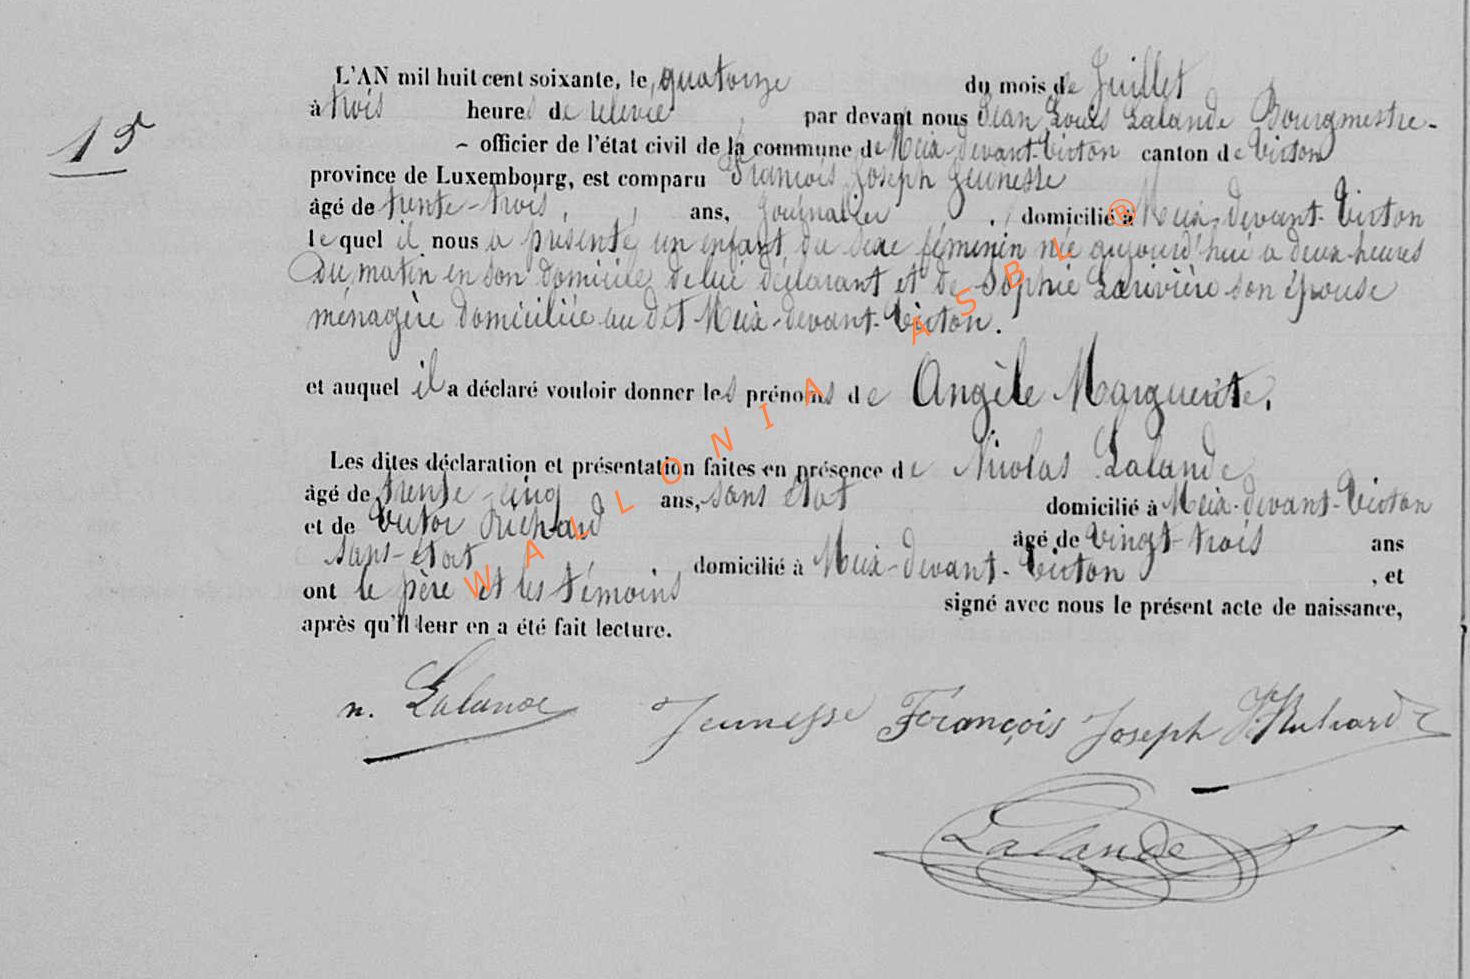 15
L'AN mil huit cent soixante, le quatorze du mois de Juillet
à trois heures de relevée par devant nous Jean Louis Lalande Bourgmestre
officier de l'état civil de la commune de Meix-devant-Virton canton de Virton
province de Luxembourg, est comparu François Joseph Jeunesse
âgé de trente-trois, ans, journalier, domicilié à Meix-devant-Virton
lequel il nous a présenté un enfant du sexe féminin née aujourd'hui à deux heures
du matin en son domicile de lui déclarant et de Sophie Larivière son épouse
ménagère domiciliée au dit Meix-devant-Virton.
et auquel il a déclaré vouloir donner les prénoms de Angèle Marguerite.
Les dites déclaration et présentation faites en présence de Nicolas Lalande
âgé de trente-cinq ans, sans état domicilié à Meix-devant-Virton
et de Victor Richard âgé de vingt-trois ans
sans-état domicilié à Meix-devant-Virton, et
ont le père et les témoins signé avec nous le présent acte de naissance,
après qu'il leur en a été fait lecture.
n. Lalande Jeunesse François Joseph V. Richard
Lalande
WALLONIA ASBL ®